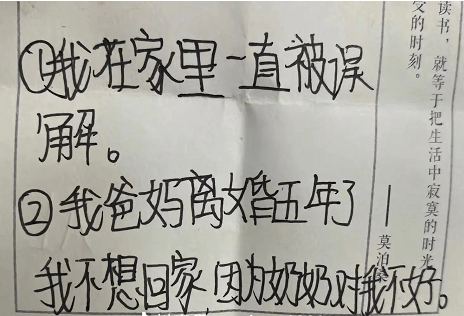 ①我在家里一直被误
解。
②我爸妈离婚五年了
我不想回家,因为奶奶对我不好。
读书,就等于把生活中寂寞的时光
的时刻。
——莫泊桑